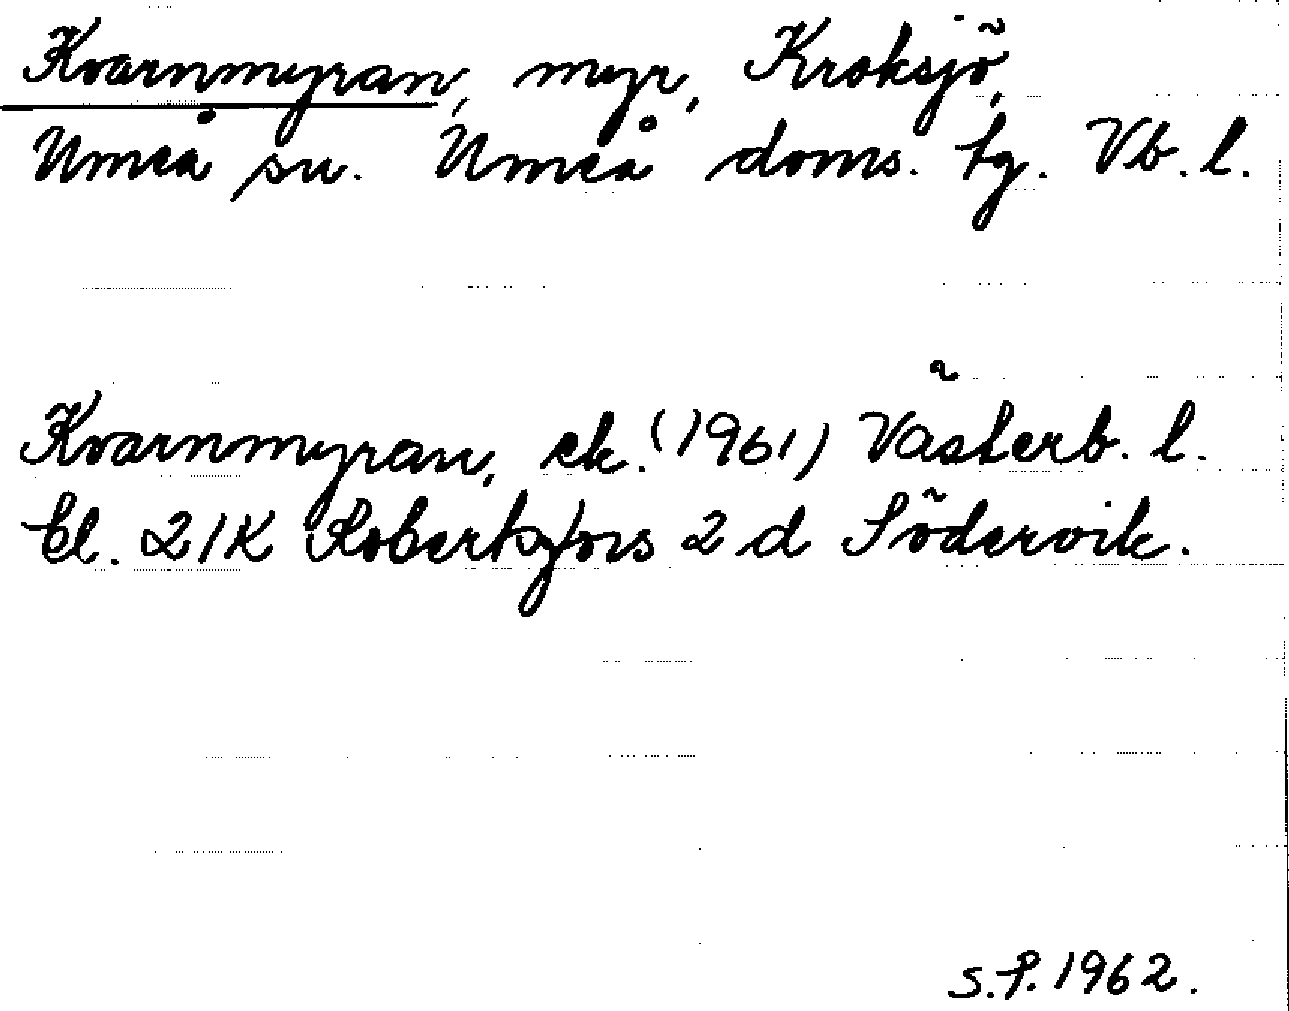 Kvarnmyran, myr, Kroksjö,
Umeå sn. Umeå doms. tg. Vb. l.
Kvarnmyran, ek. (1961) Västerb. l.
bl. 21K Robertsfors 2 d Södervik.
S.P. 1962.